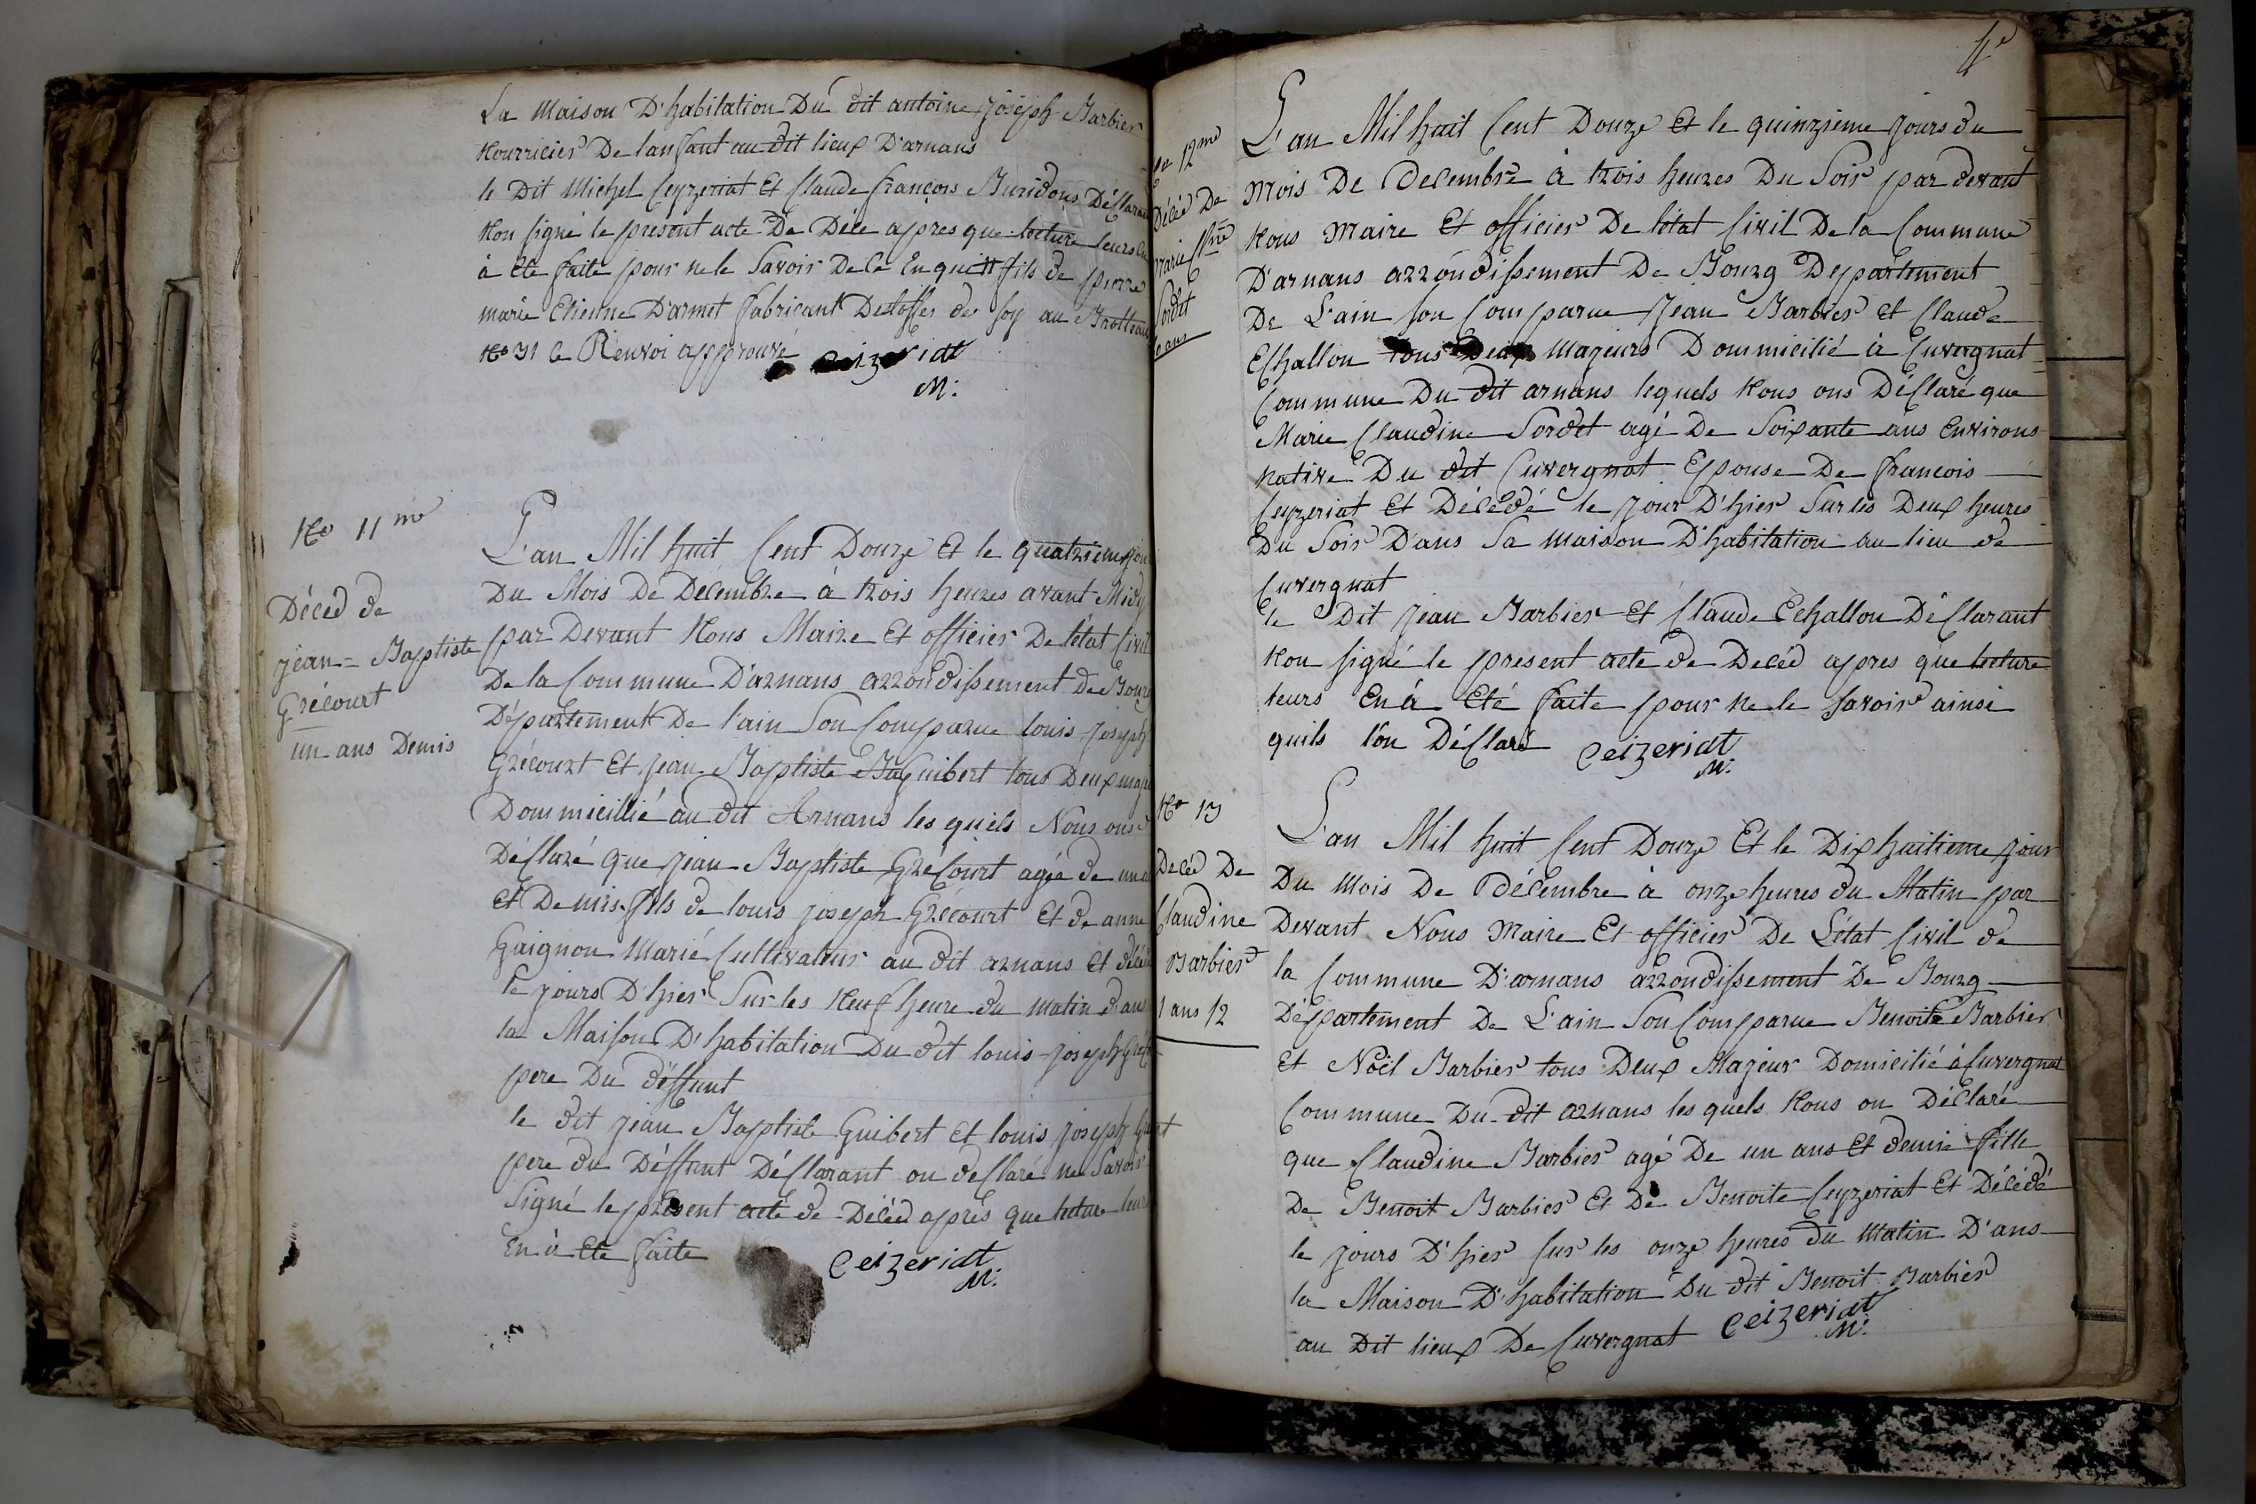 La Maison D'habitation Du dit antoine joseph Barbier
Nourricier De lanfant au dit lieux D'arnans
le Dit Michel Ceyzeriat Et Claude françois Buridons Déclarant
Non signé le present acte De Déce apres que lecture leurs en
à été faite pour ne le Savoir De Ce Enquis fils de pierre
marie Etienne D'armet fabricant Destoffes de soy au Brotteau
No 31 le Renvoi approuvé ceizeriat
M:
No 11me
Décéd de
jean=Baptiste
Grécourt
un ans Demis
L'an Mil huit Cent Douze Et le quatrieme jour
Du Mois De Décembre à trois heures avant Midy
par Devant Nous Maire Et officier De létat Civil
De la Commune D'arnans arrondissement De Bourg
Département De l'ain Son Comparue louis joseph
Grécourt Et jean Baptiste Guibert tous Deux
Dommicillié au dit Arnans les quels Nous ons
Déclaré que jean Baptiste Grécourt agée de un
et Demis fils de louis joseph Grécourt Et de anne
Gaignon Marié Cultivateur au dit arnans Et
le jours D'hier Sur les Neuf heure du matin dans
la Maison D'habitation Du dit louis joseph
pere Du déffunt
le dit jean Baptiste Guibert et louis joseph
pere du Déffunt Déclarant on declaré ne Savoir
Signé le présent acte de Décéd après que lecture leur
En à Eté faite ceizeriat
M:
4e
No 12me
Décéd De
Marie Cline
Sordet
L'an Mil huit Cent Douze Et le quinzieme jours du
Mois De Decembre à trois heures Du Soir par devant
Nous Maire Et officier De létat Civil De la Commune
D'arnans arrondissement De Bourg Departement
De L'ain son Comparue Jean Barbier et Claude
Echallon tous Deux Majeurs Dommicilié à Cuvergnat
Commune Du dit arnans lequels Nous ons Déclaré que
Marie Claudine Sordet agé De Soixante ans Environs
Native Du dit Cuvergnat Epouse De francois
Ceyzeriat Et Décédé le jour D'hier Sur les Deux heures
Du Soir D'ans Sa Maison D'habitation au lieu de
Cuvergnat
le Dit jean Barbier Et Claude Echallon Déclarant
Non signé le present acte de Decéd apres que lecture
leurs En à Eté faite pour ne le savoir ainsi
quils l'on Déclaré ceizeriat
M:
No 13
Decéd De
Claudine
Barbier
1 ans 12
L'an Mil huit Cent Douze Et le Dix huitieme jour
Du Mois De Décembre à onze heures du Matin par
Devant Nous Maire Et officier De L'état Civil de
la Commune D'arnans arrondissement De Bourg
Département De L'ain Son Comparue Benoite Barbier
Et Noël Barbier tous Deux Majeur Domicilié à Cuvergnat
Commune Du dit arnans les quels Nous on Déclaré
que Claudine Barbier agé De un ans et demie fille
De Benoit Barbier Et De Benoite Ceyzeriat Et Décédé
le jours D'hier sur les onze heures du Matin D'ans
la Maison D'habitation Du dit Benoit Barbier
au Dit lieux De Cuvergnat ceizeriat
M: